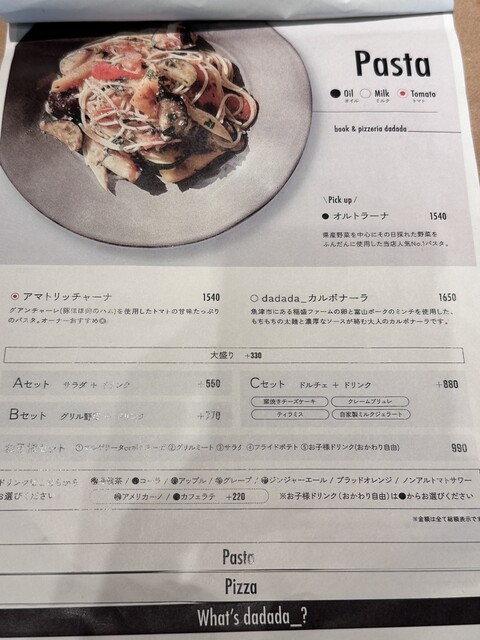 Pasta
Oil Milk Tomato
オイル ミルク トマト
book & pizzeria dadada_
\Pick up/
● オルトラーナ 1540
県産野菜を中心にその日採れた野菜を
ふんだんに使用した当店人気No.1パスタ。
アマトリッチャーナ 1540
グアンチャーレ(豚ほほ肉のハム)を使用したトマトの甘味たっぷり
のパスタ。オーナーおすすめ◎。
○ dadada_カルボナーラ 1650
魚津市にある稲盛ファームの卵と富山ポークのミンチを使用した、
もちもちの太麺と濃厚なソースが絡む大人のカルボナーラです。
大盛り +330
Aセット サラダ + ドリンク +550
Bセット グリル野菜
Cセット ドルチェ + ドリンク +880
窯焼きチーズケーキ クレームブリュレ
ティラミス 自家製ミルクジェラート
セット ②グリルミート ③サラダ ④フライドポテト ⑤お子様ドリンク(おかわり自由) 990
コーラ / アップル / グレープ / ジンジャーエール / ブラッドオレンジ / ノンアルトマトサワー
お選びください アメリカーノ / ●カフェラテ +220 ※お子様ドリンク(おかわり自由)は●からお選びください
※金額は全て総額表示で
Pasta
Pizza
What's dadada_?